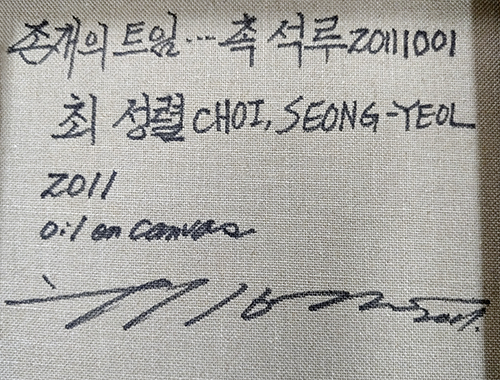 존재의 트임... 촉석루2011001
최 성렬 CHOI, SEONG-YEOL
2011
oil on canvas
2011.